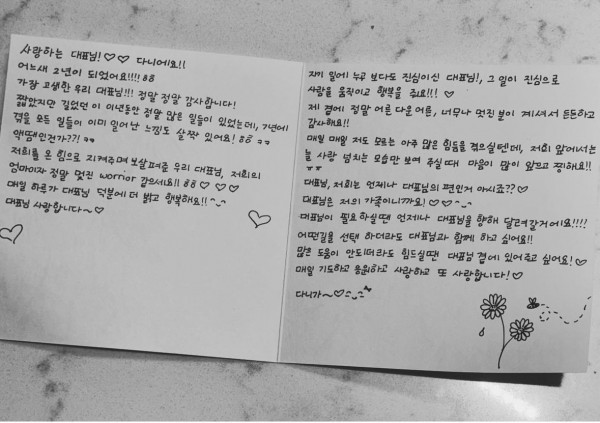 사랑하는 대표님! ♡♡ 다니에요!!
어느새 2년이 되었어요!!!! ㅎㅎ
가장 고생한 우리 대표님!!! 정말 정말 감사합니다!
짧았지만 길었던 이 이년동안 정말 많은 일들이 있었는데, 7년에
겪을 모든 일들이 이미 일어난 느낌도 살짝 있어요! ㅎㅎ ㅋㅋ
액땜인건가??! ㅋㅋ
저희를 온 힘으로 지켜주며 보살펴준 우리 대표님, 저희의
엄마이자 정말 멋진 worrior 같으세요!! ㅎㅎ ♡ ♡ ♡
매일 하루가 대표님 덕분에 더 밝고 행복해요!! ^-^
대표님 사랑합니다~♡
자기 일에 누구 보다도 진심이신 대표님!, 그 일이 진심으로
사람을 움직이고 행복을 줘요!!! ♡
제 곁에 정말 어른 다운 어른, 너무나 멋진 분이 계셔서 든든하고
감사해요!!
매일 매일 저도 모르는 아주 많은 힘듦을 겪으실텐데, 저희 앞에서는
늘 사랑 넘치는 모습만 보여 주실 때 마음이 많이 아프고 찡해요!!
ㅠㅠ
대표님, 저희는 언제나 대표님의 편인거 아시죠?? ♡
대표님은 저의 가족이니까요! ♡♡ ^-^
대표님이 필요하실땐 언제나 대표님을 향해 달려갈거에요!!!!
어떤길을 선택 하더라도 대표님과 함께 하고 싶어요!!
많은 도움이 안되더라도 힘드실땐 대표님 곁에 있어주고 싶어요! ♡
매일 기도하고 응원하고 사랑하고 또 사랑합니다! ♡
다니가~♡